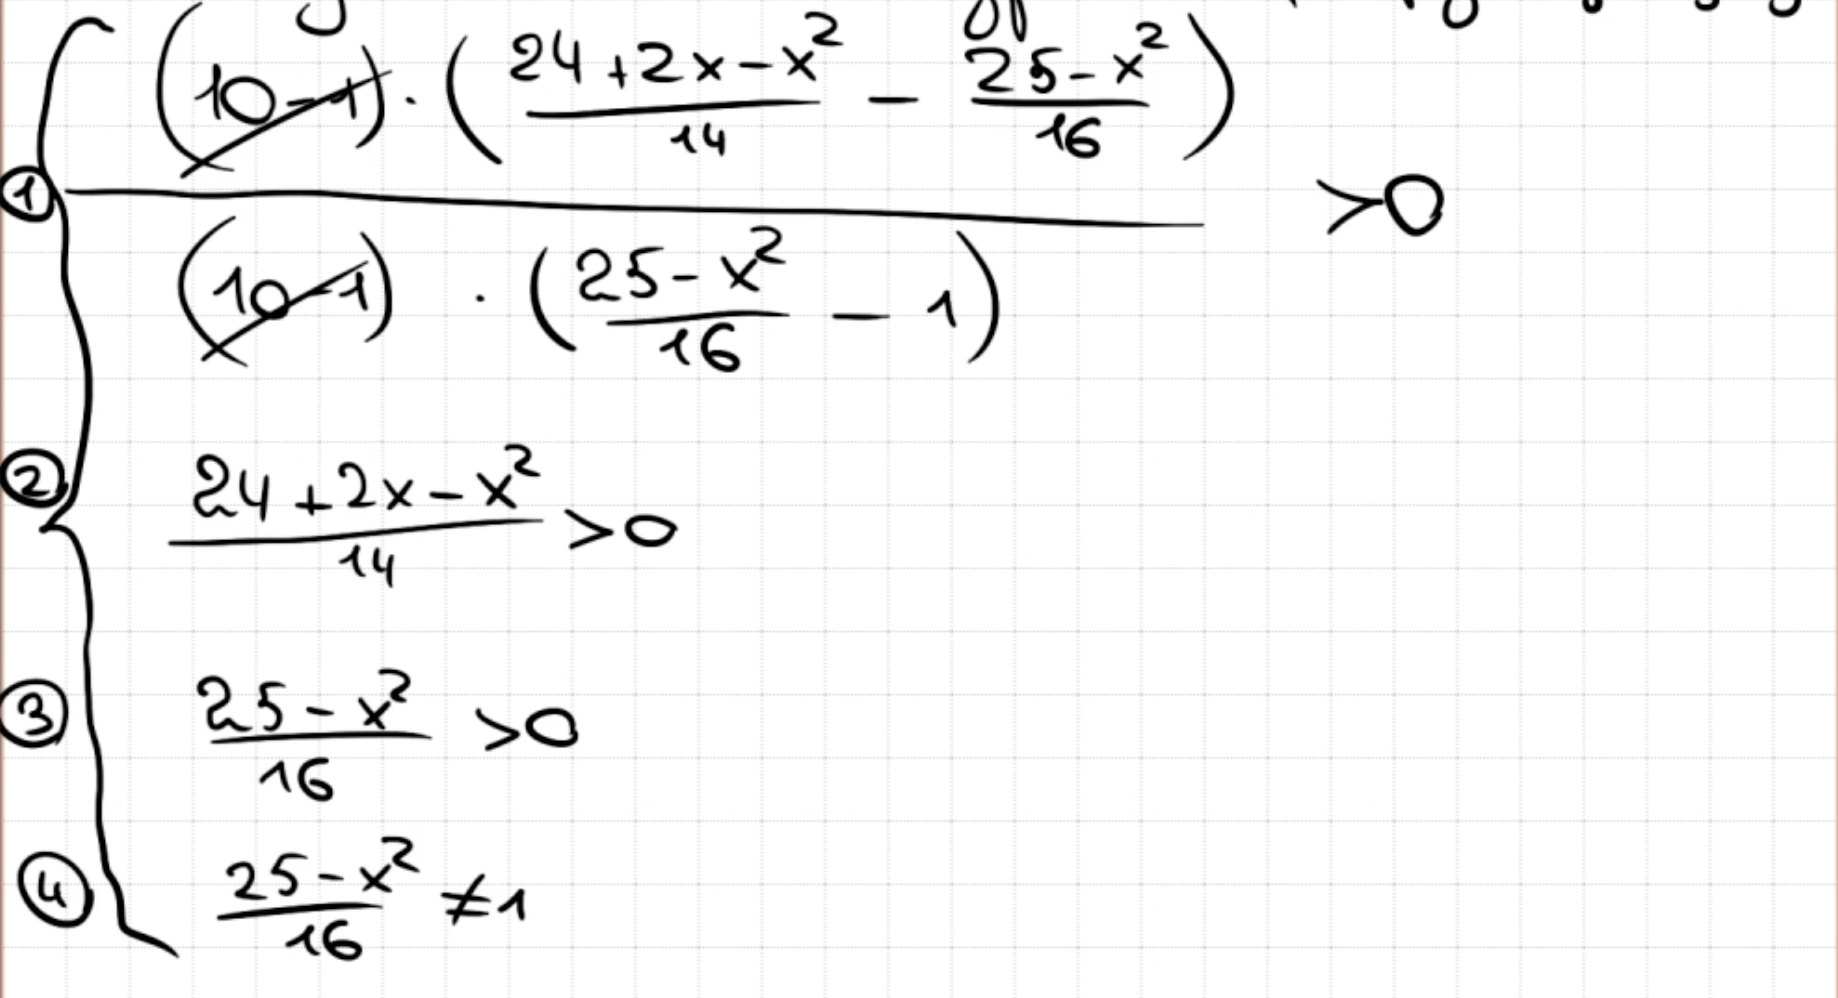 (10-1) · ( (24+2x-x²)/14 - (25-x²)/16 )
① ――――――――――― >0
(10-1) · ( (25-x²)/16 - 1 )
② (24+2x-x²)/14 >0
③ (25-x²)/16 >0
④ (25-x²)/16 ≠1